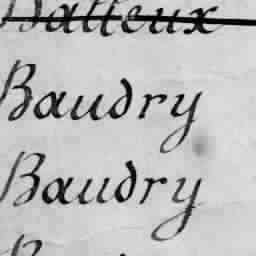 Batteux
Baudry
Baudry